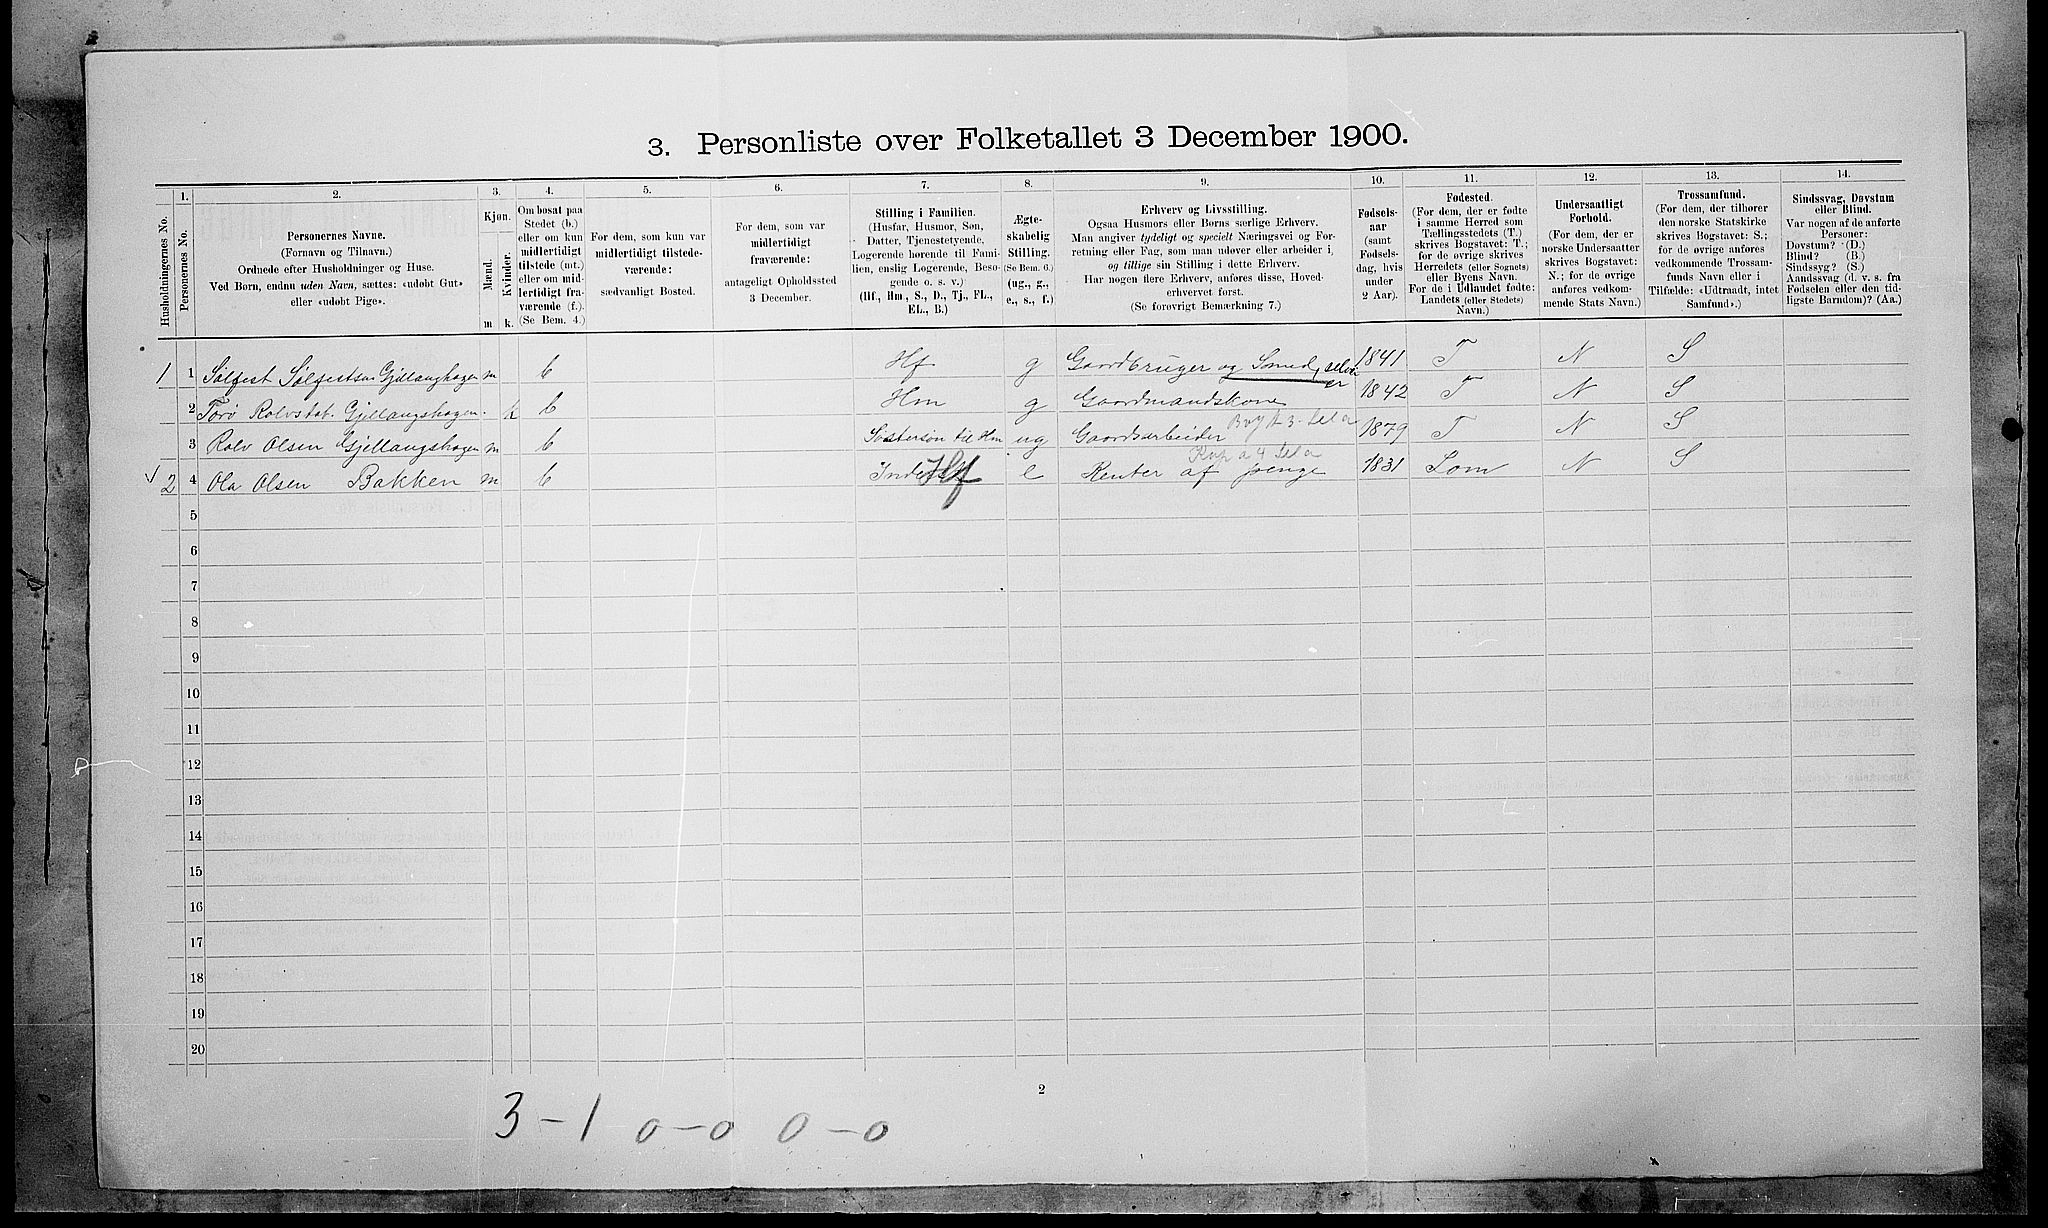 3. Personliste over Folketallet 3 December 1900.
1. 2. 3. 4. 5. 6. 7. 8. 9. 10. 11. 12. 13. 14.
Husholdningernes No.
Personernes No.
Personernes Navne.
(Fornavn og Tilnavn.)
Ordnede efter Husholdninger og Huse.
Ved Børn, endnu uden Navn, sættes: «udøbt Gut»
eller «udøbt Pige».
Kjøn.
Mænd.
Kvinder.
m k.
Om bosat paa
Stedet (b.)
eller om kun
midlertidigt
tilstede (mt.)
eller om mid-
lertidigt fra-
værende (f.).
(Se Bem. 4.)
For dem, som kun var
midlertidigt tilstede-
værende:
sædvanligt Bosted.
For dem, som var
midlertidigt
fraværende:
antageligt Opholdssted
3 December.
Stilling i Familien.
(Husfar, Husmor, Søn,
Datter, Tjenestetyende,
Logerende hørende til Fami-
lien, enslig Logerende, Besø-
gende o. s. v.)
(Hf., Hm., S., D., Tj., FL.,
EL., B.)
Ægte-
skabelig
Stilling.
(Se Bem. 6.)
(ug., g.,
e., s., f.)
Erhverv og Livsstilling.
Ogsaa Husmors eller Børns særlige Erhverv.
Man angiver tydeligt og specielt Næringsvei og For-
retning eller Fag, som man udøver eller arbeider i,
og tillige sin Stilling i dette Erhverv.
Har nogen flere Erhverv, anføres disse, Hoved-
erhvervet først.
(Se forøvrigt Bemærkning 7.)
Fødsels-
aar
(samt
Fødsels-
dag, hvis
under
2 Aar).
Fødested.
(For dem, der er fødte
i samme Herred som
Tællingsstedets (T.)
skrives Bogstavet: T.;
for de øvrige skrives
Herredets (eller Sognets)
eller Byens Navn.
For de i Udlandet fødte:
Landets (eller Stedets)
Navn.)
Undersaatligt
Forhold.
(For dem, der er
norske Undersaatter
skrives Bogstavet:
N.; for de øvrige
anføres vedkom-
mende Stats Navn.)
Trossamfund.
(For dem, der tilhører
den norske Statskirke
skrives Bogstavet: S.;
for de øvrige anføres
vedkommende Trossam-
funds Navn eller i
Tilfælde: «Udtraadt, intet
Samfund».)
Sindssvag, Døvstum
eller Blind.
Var nogen af de anførte
Personer:
Døvstum? (D.)
Blind? (B.)
Sindssyg? (S.)
Aandssvag (d. v. s. fra
Fødselen eller den tid-
ligste Barndom)? (Aa.)
1 1 Sølfest Sølfestsen Gjellanghagen m b Hf g Gaardbruger og Smed, selveier 1841 T N S
2 Torø Rolvsdat. Gjellangshagen. k b Hm g Gaardmandskone 1842 T N S
3 Rolv Olsen Gjellangshagen m b Søstersøn til Hm ug Gaardsarbeider 1879 T N S
2 4 Ola Olsen Bakken m b Hf e Renter af penge 1831 Lom N S
5
6
7
8
9
10
11
12
13
14
15
16
17
18
19
20
2
3 - 1 0 - 0 0 - 0